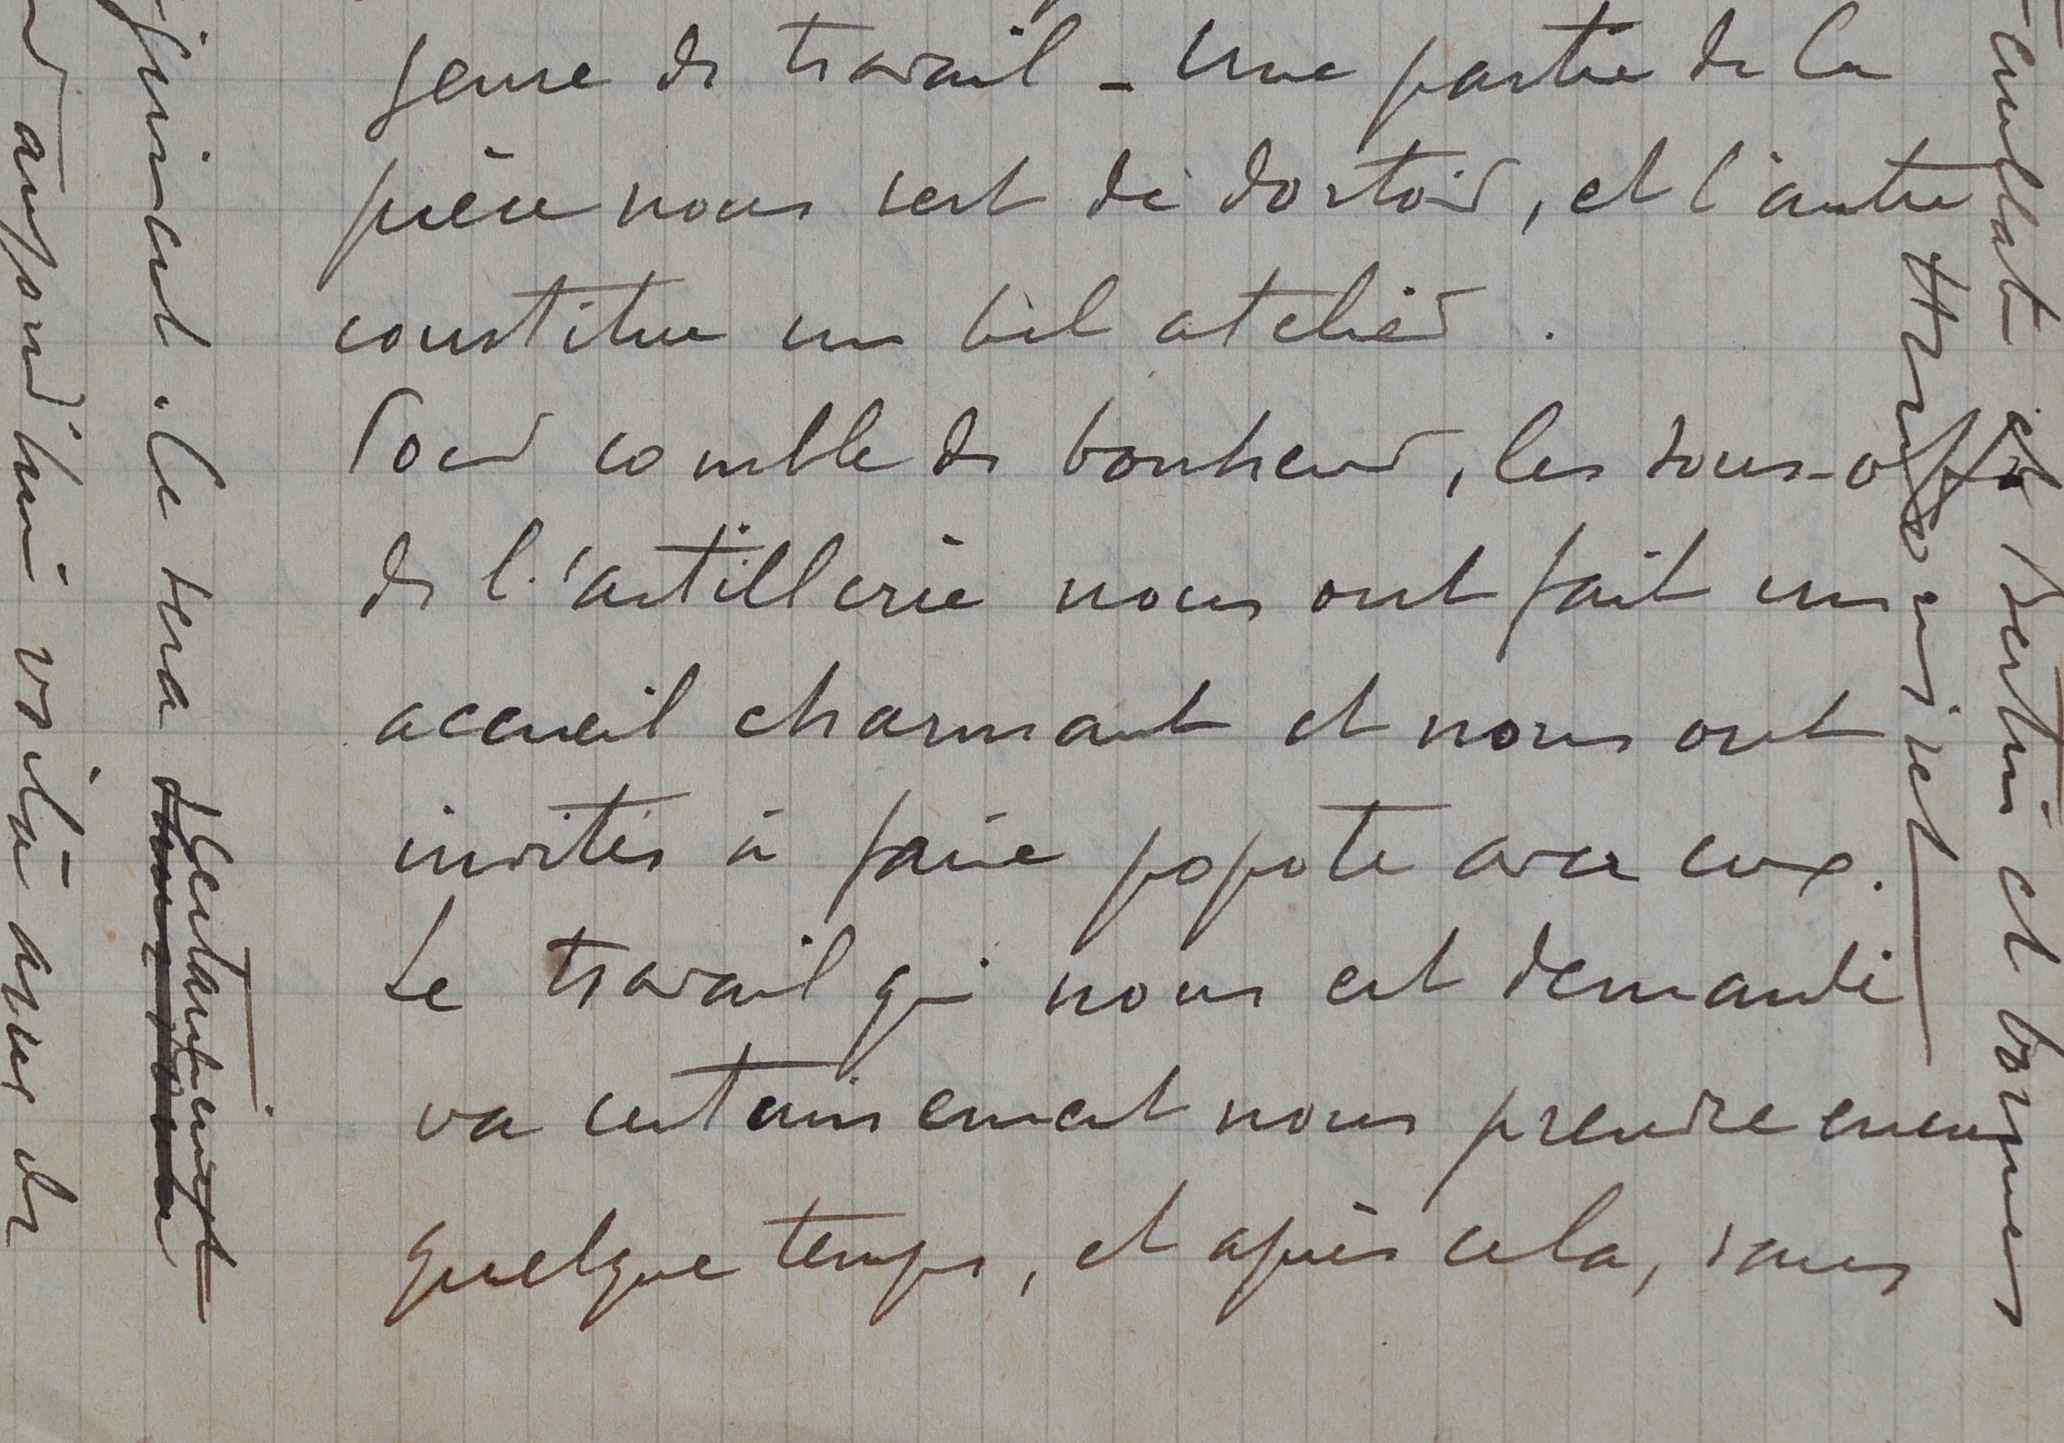 genre de travail - Une partie de la
pièce nous sert de dortoir, et l'autre
constitue un bel atelier.
Pour comble de bonheur, les sous-offs
de l'artillerie nous ont fait un
accueil charmant et nous ont
invités à faire popote avec eux.
Le travail qui nous est demandé
va certainement nous prendre encore
quelque temps, et après cela, sans
aujourd'hui voilà assez de
. Ce sera
certainement
et Bertin et bonnes